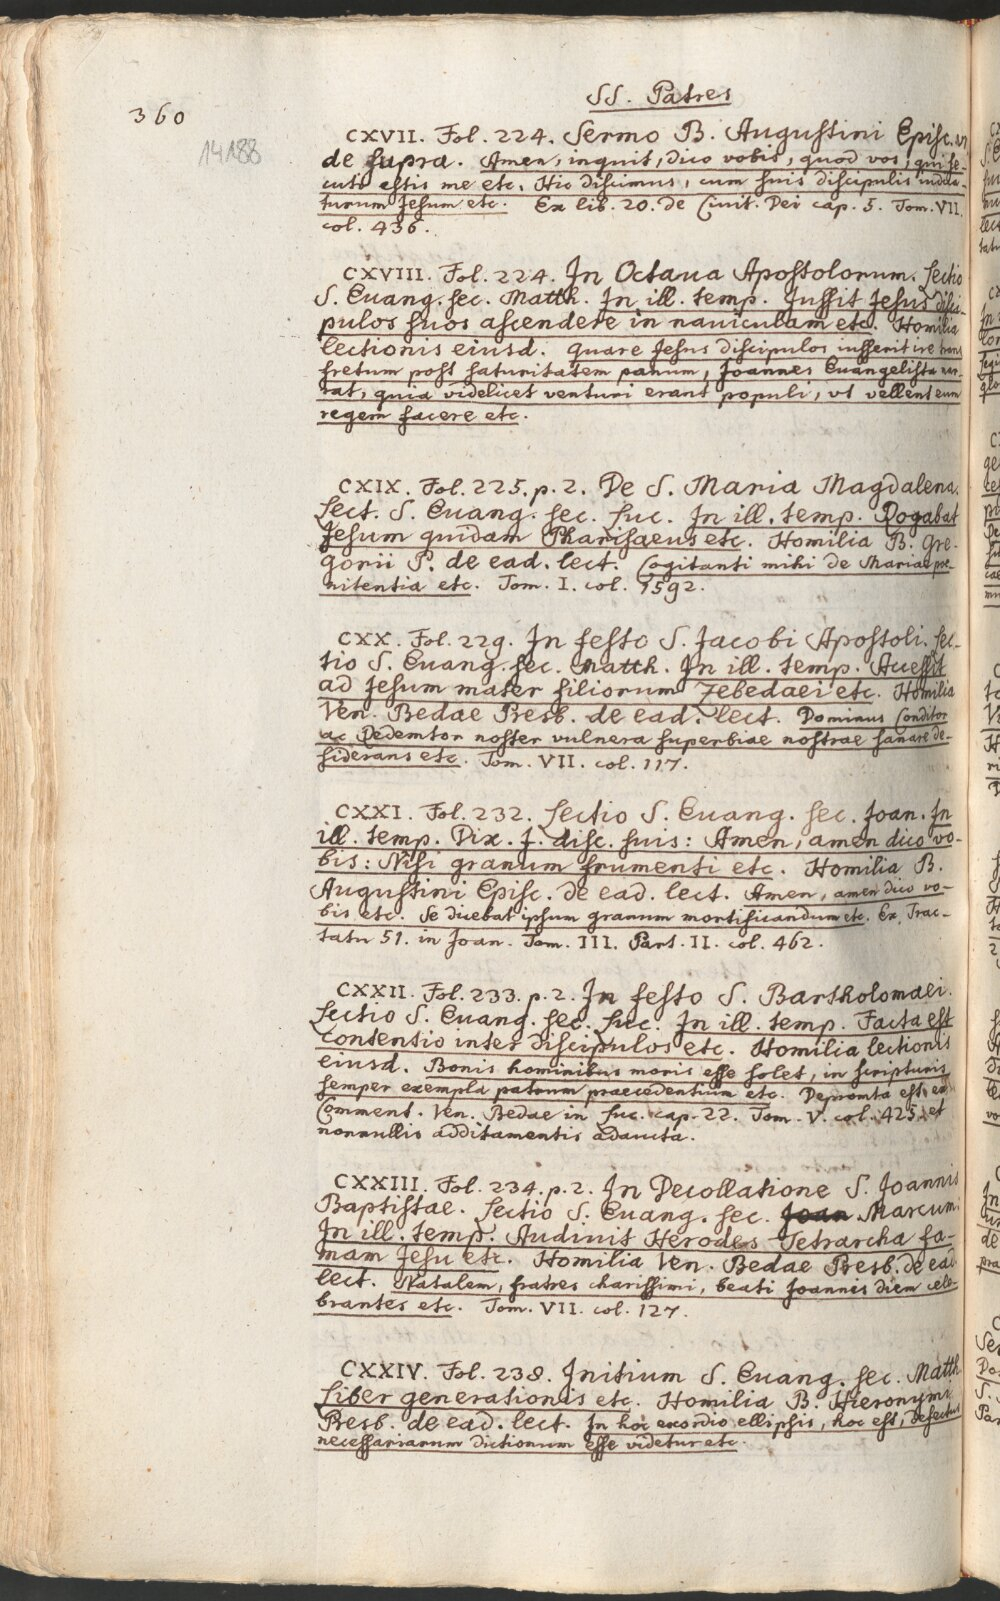 SS. Patres
360
14188
CXVII. Fol. 224. Sermo B. Augustini Episc. ut
de supra. Amen, inquit, dico vobis, quod vos, qui se-
cuti estis me etc. Hic discimus, cum suis discipulis iudica-
turum Jesum etc. Ex lib. 20. de Civit. Dei cap. 5. Tom. VII.
col. 436.
CXVIII. Fol. 224. In Octaua Apostolorum. Lectio
S. Euang. sec. Matth. In ill. temp. Jussit Jesus disci-
pulos suos ascendere in nauiculam etc. Homilia
lectionis eiusd. Quare Jesus discipulos iusserit ire trans
fretum post saturitatem panum, Joannes Euangelista nar-
rat, quia videlicet venturi erant populi, vt vellent eum
regem facere etc.
CXIX. Fol. 225. p. 2. De S. Maria Magdalena.
Lect. S. Euang. sec. Luc. In ill. temp. Rogabat
Jesum quidam Pharisaeus etc. Homilia B. Gre-
gorii P. de ead. lect. Cogitanti mihi de Mariae poe-
nitentia etc. Tom. I. col. 1592.
CXX. Fol. 229. In festo S. Jacobi Apostoli. Lec-
tio S. Euang. sec. Matth. In ill. temp. Accessit
ad Jesum mater filiorum Zebedaei etc. Homilia
Ven. Bedae Presb. de ead. lect. Dominus Conditor
ac Redemtor noster vulnera superbiae nostrae sanare de-
siderans etc. Tom. VII. col. 117.
CXXI. Fol. 232. Lectio S. Euang. sec. Joan. In
ill. temp. Dix. J. disc. suis: Amen, amen dico vo-
bis: Nisi granum frumenti etc. Homilia B.
Augustini Episc. de ead. lect. Amen, amen dico vo-
bis etc. Se dicebat ipsum granum mortificandum etc. Ex Trac-
tatu 51. in Joan. Tom. III. Part. II. col. 462.
CXXII. Fol. 233. p. 2. In festo S. Bartholomaei.
Lectio S. Euang. sec. Luc. In ill. temp. Facta est
contentio inter discipulos etc. Homilia lectionis
eiusd. Bonis hominibus moris esse solet, in scripturis
semper exempla patrum praecedentium etc. Depromta est ex
Comment. Ven. Bedae in Luc. cap. 22. Tom. V. col. 425. et
nonnullis additamentis adaucta.
CXXIII. Fol. 234. p. 2. In Decollatione S. Joannis
Baptistae. Lectio S. Euang. sec. Joan Marcum.
In ill. temp. Audiuit Herodes Tetrarcha fa-
mam Jesu etc. Homilia Ven. Bedae Presb. de ead
lect. Natalem, fratres charissimi, beati Joannis diem cele-
brantes etc. Tom. VII. col. 127.
CXXIV. Fol. 238. Initium S. Euang. sec. Matth.
Liber generationis etc. Homilia B. Hieronymi
Presb. de ead. lect. In hoc exordio ellipsis, hoc est, defectus
necessariarum dictionum esse videtur etc.